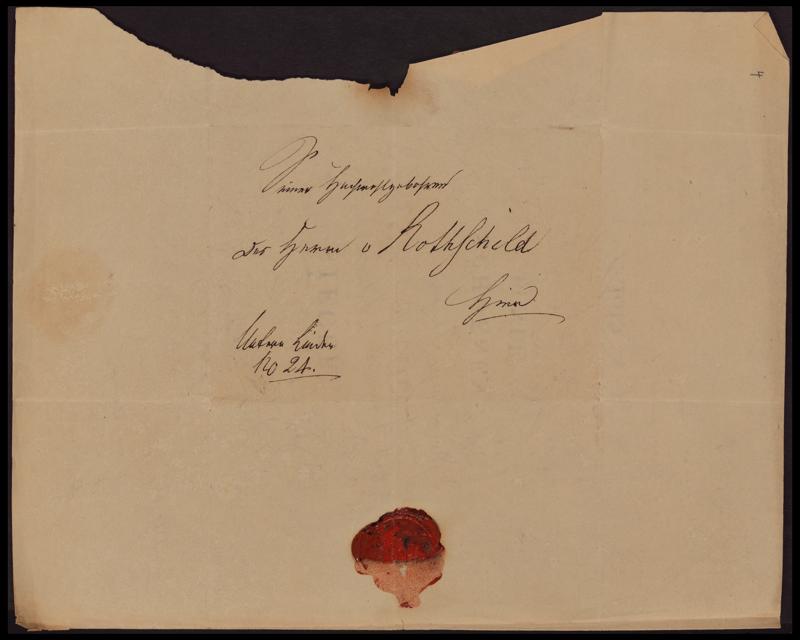 4
Seiner Hochwohlgebohren
des Herrn v Rothschild
Hier
Untern Linden
No 24.